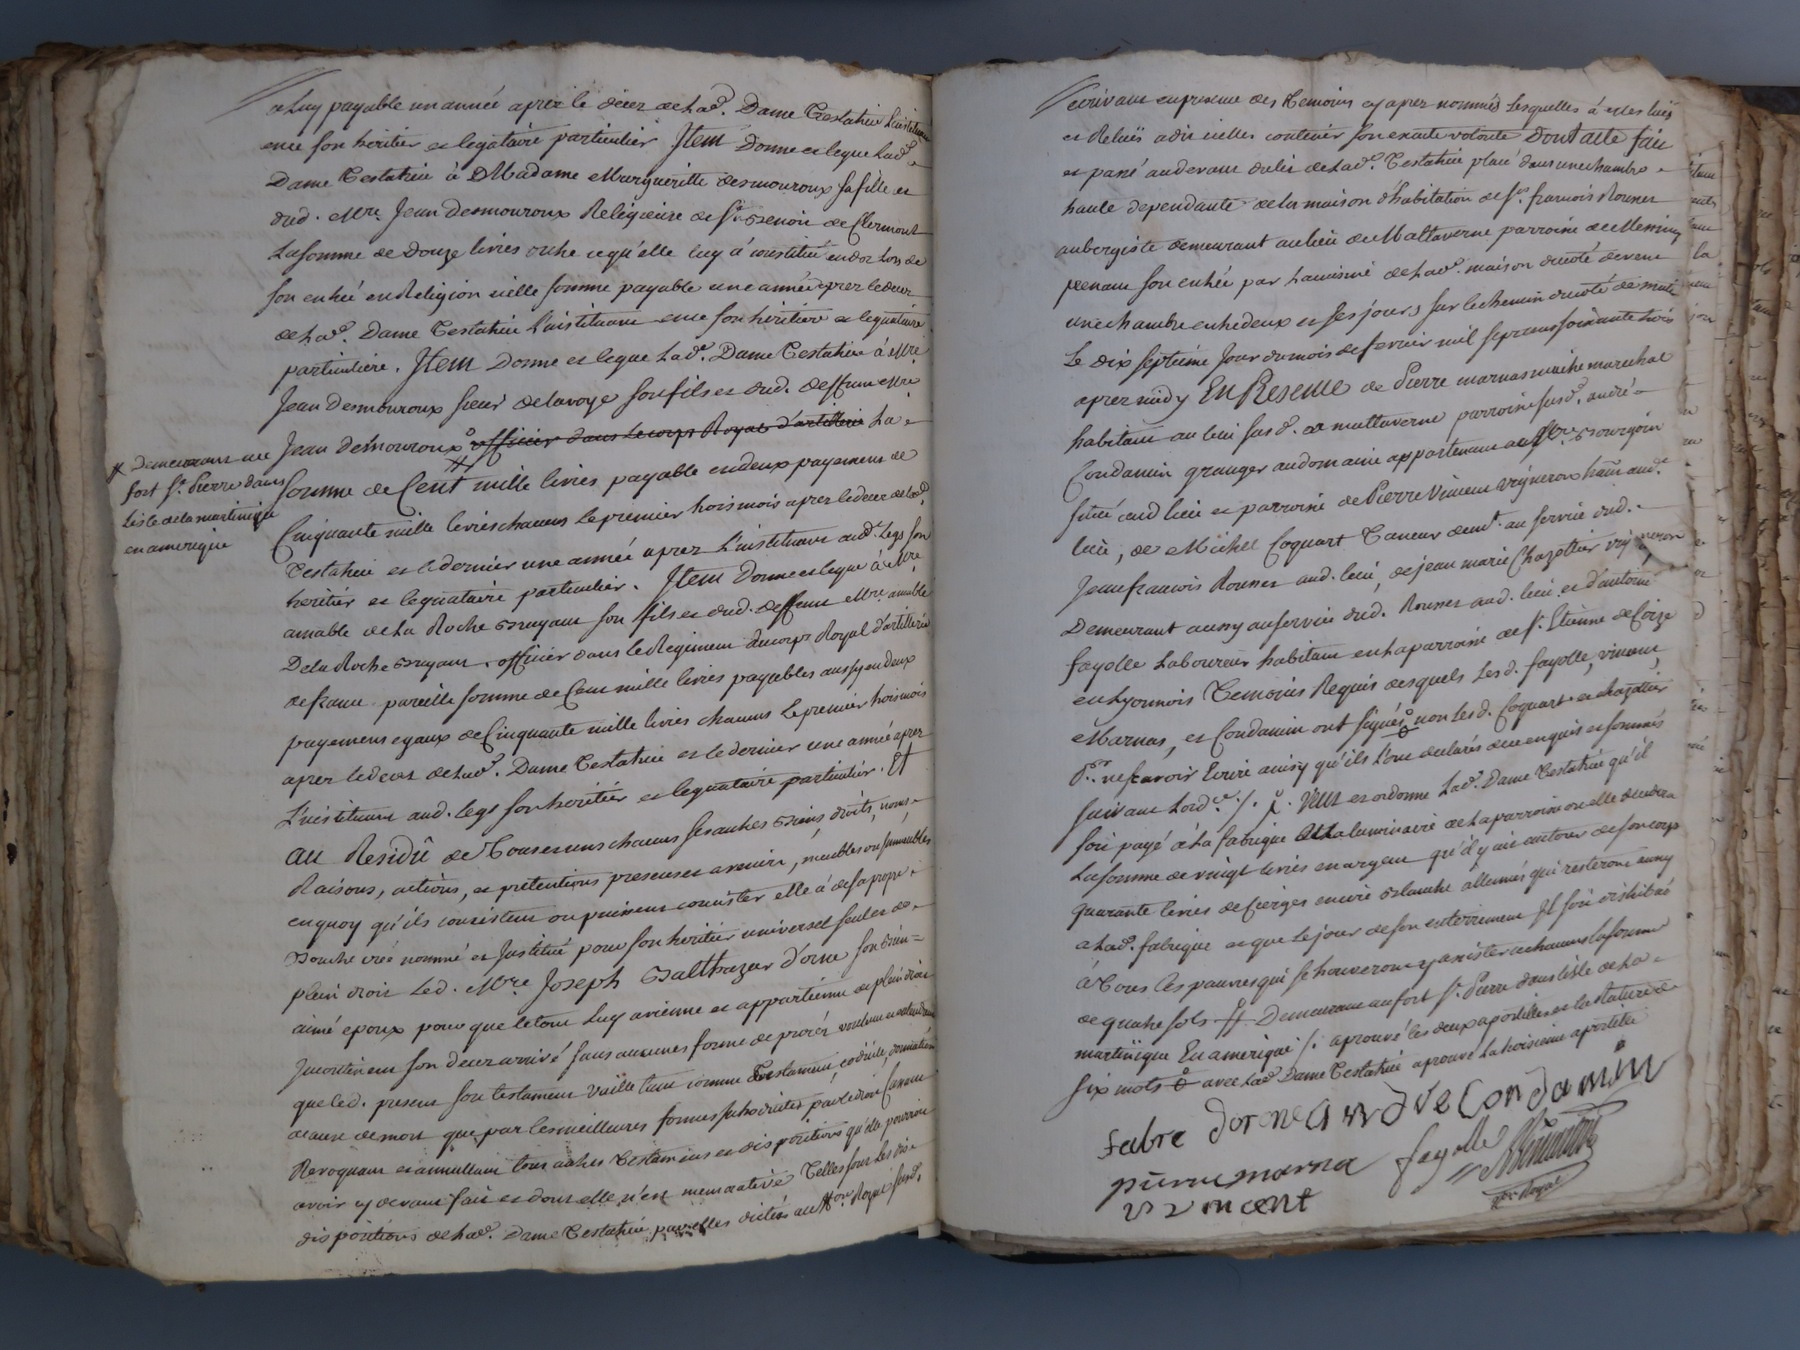 a Luy payable une année aprez le décez de lad.e Dame Testatrice L'instituant
enue son héritier et legataire particulier Item Donne et legue lad.e
Dame Testatrice à Madame Marguerite desmouroux sa fille et
dud. M.re Jean Desmouroux Religieuse de S.t Benoit de Clermont
La somme de Douze livres outre ce qu'elle luy a constitué en dot Lors de
son entrée en Religion icelle somme payable une année aprez le decez
de lad.e Dame Testatrice L'instituant enue son héritiere et legataire
particuliere. Item Donne et legue lad.e Dame Testatrice à M.re
Jean Desmouroux sieur delavoye son fils et dud. deffunt M.re
Jean Desmouroux officier dans le corps Royal d'artillerie La
# Demeurant au
fort S.t Pierre dans
Lisle de la martinique
en amerique
somme de Cent mille livres payable en deux payements de
Cinquante mille livres chacuns Le premier trois mois aprez le decez de lad.e
Testatrice et le dernier une année aprez L'instituant aud. Legs son
heritier et leguataire particulier. Item Donne et legue à M.re
amable de La Roche Bruyant son fils et dud. deffunt M.re amable
De La Roche Bruyant officier dans le Regiment du corps Royal d'artillerie
de france pareille somme de Cent mille livres payables aussy en deux
payements egaux de Cinquante mille livres chacuns Le premier trois mois
aprez le decez de lad.e Dame Testatrice et le dernier une année aprez
L'instituant aud. legs son heritier et leguataire particulier. Et
au Residû de Tous et uns chacuns ses autres Biens, droits, noms,
Raisons, actions, et prétentions presents et avenirs, meubles ou immeubles
en quoy qu'ils consistent ou puissent consister elle à de sa propre
Bouche créé nommé et Institué pour son heritier universel seul et de
plein droit Led. M.re Joseph Balthazar d'orne son Bien=
aimé epoux pour que le tout Luy avienne et appartienne de plein droit
Incontinent son decez arrivé sans aucunes forme de procez voulant et entendant
que led. present son testament vaille tant comme Testament, codicile, donnation
à cause de mort que par les meilleures formes introduites par le droit Cassant
Revoquant et annullant tous autres Testaments et dispositions qu'elle pourroit
avoir cy devant fait et dont elle n'est memorative Telles sont Les dis=
dispositions de lad.e Dame Testatrice par elles dictées au No.re Royal susd.
écrivant en presence des Temoins cy aprez nommés Lesquelles à elles luës
et Reluës a dit icelles contenir son exacte volonté Dont acte fait
et passé au devant du lit de lad.e Testatrice placé dans une chambre
haute dependante de la maison d'habitation de S.r francois Rouner
aubergiste demeurant au lieu de Mattaverne parroisse de
prenant son entrée par l'
une chambre entre deux et ses jours sur le chemin du coté de matin
Le dix septieme Jour du mois de fevrier mil sept cens soixante trois
aprez midy En Presence de Pierre marnas maitre marechal
habitant au lieu susd. de mattaverne parroisse susd. andré
Condamin granger au domaine appartenant au S.r Bourgoin
situé aud. lieu et parroisse de Pierre Vincent vigneron hâ.nt aud.
lieu, de Michel Coquart Taneur deme.t au service dud.
Jean francois Rouner aud. lieu, de jean marie Chazottier vigneron
Demeurant aussy au service dud. Rouner aud. lieu et d'antoine
fayolle Laboureur habitant en la parroisse de S.t Etienne de Coize
en Lyonnois Temoins Requis desquels Lesd. fayolle, vincent,
Marnas, et Condamin ont signés non Lesd. Coquart et chazottier
p.r ne scavoir Ecrire ainsy qu'ils l'ont declarés de ce enquis et sommés
suivant Lord.ce /. Veut et ordonne Lad.e Dame Testatrice qu'il
soit payé à la fabrique au luminaire de la parroisse ou elle decedera
La somme de vingt livres en argent qu'il y ait autour de son corps
quarante livres de Cierges en cire Blanche allumés qui resteront aussy
a lad.e fabrique et que le jour de son enterrement Il soit distribué
à Tous Les pauvres qui se trouveront y assister a chacuns la somme
de quatre sols # Demeurant au fort S.t Pierre dans l'isle de La
martinique En amerique /. aprouvé les deux apostilles et la Rature de
six mots avec lad.e Dame Testatrice aprouvé La troisieme apostille
fabre dorne andré Condamin
pierre marna fayolle
vincent
No.re Royal